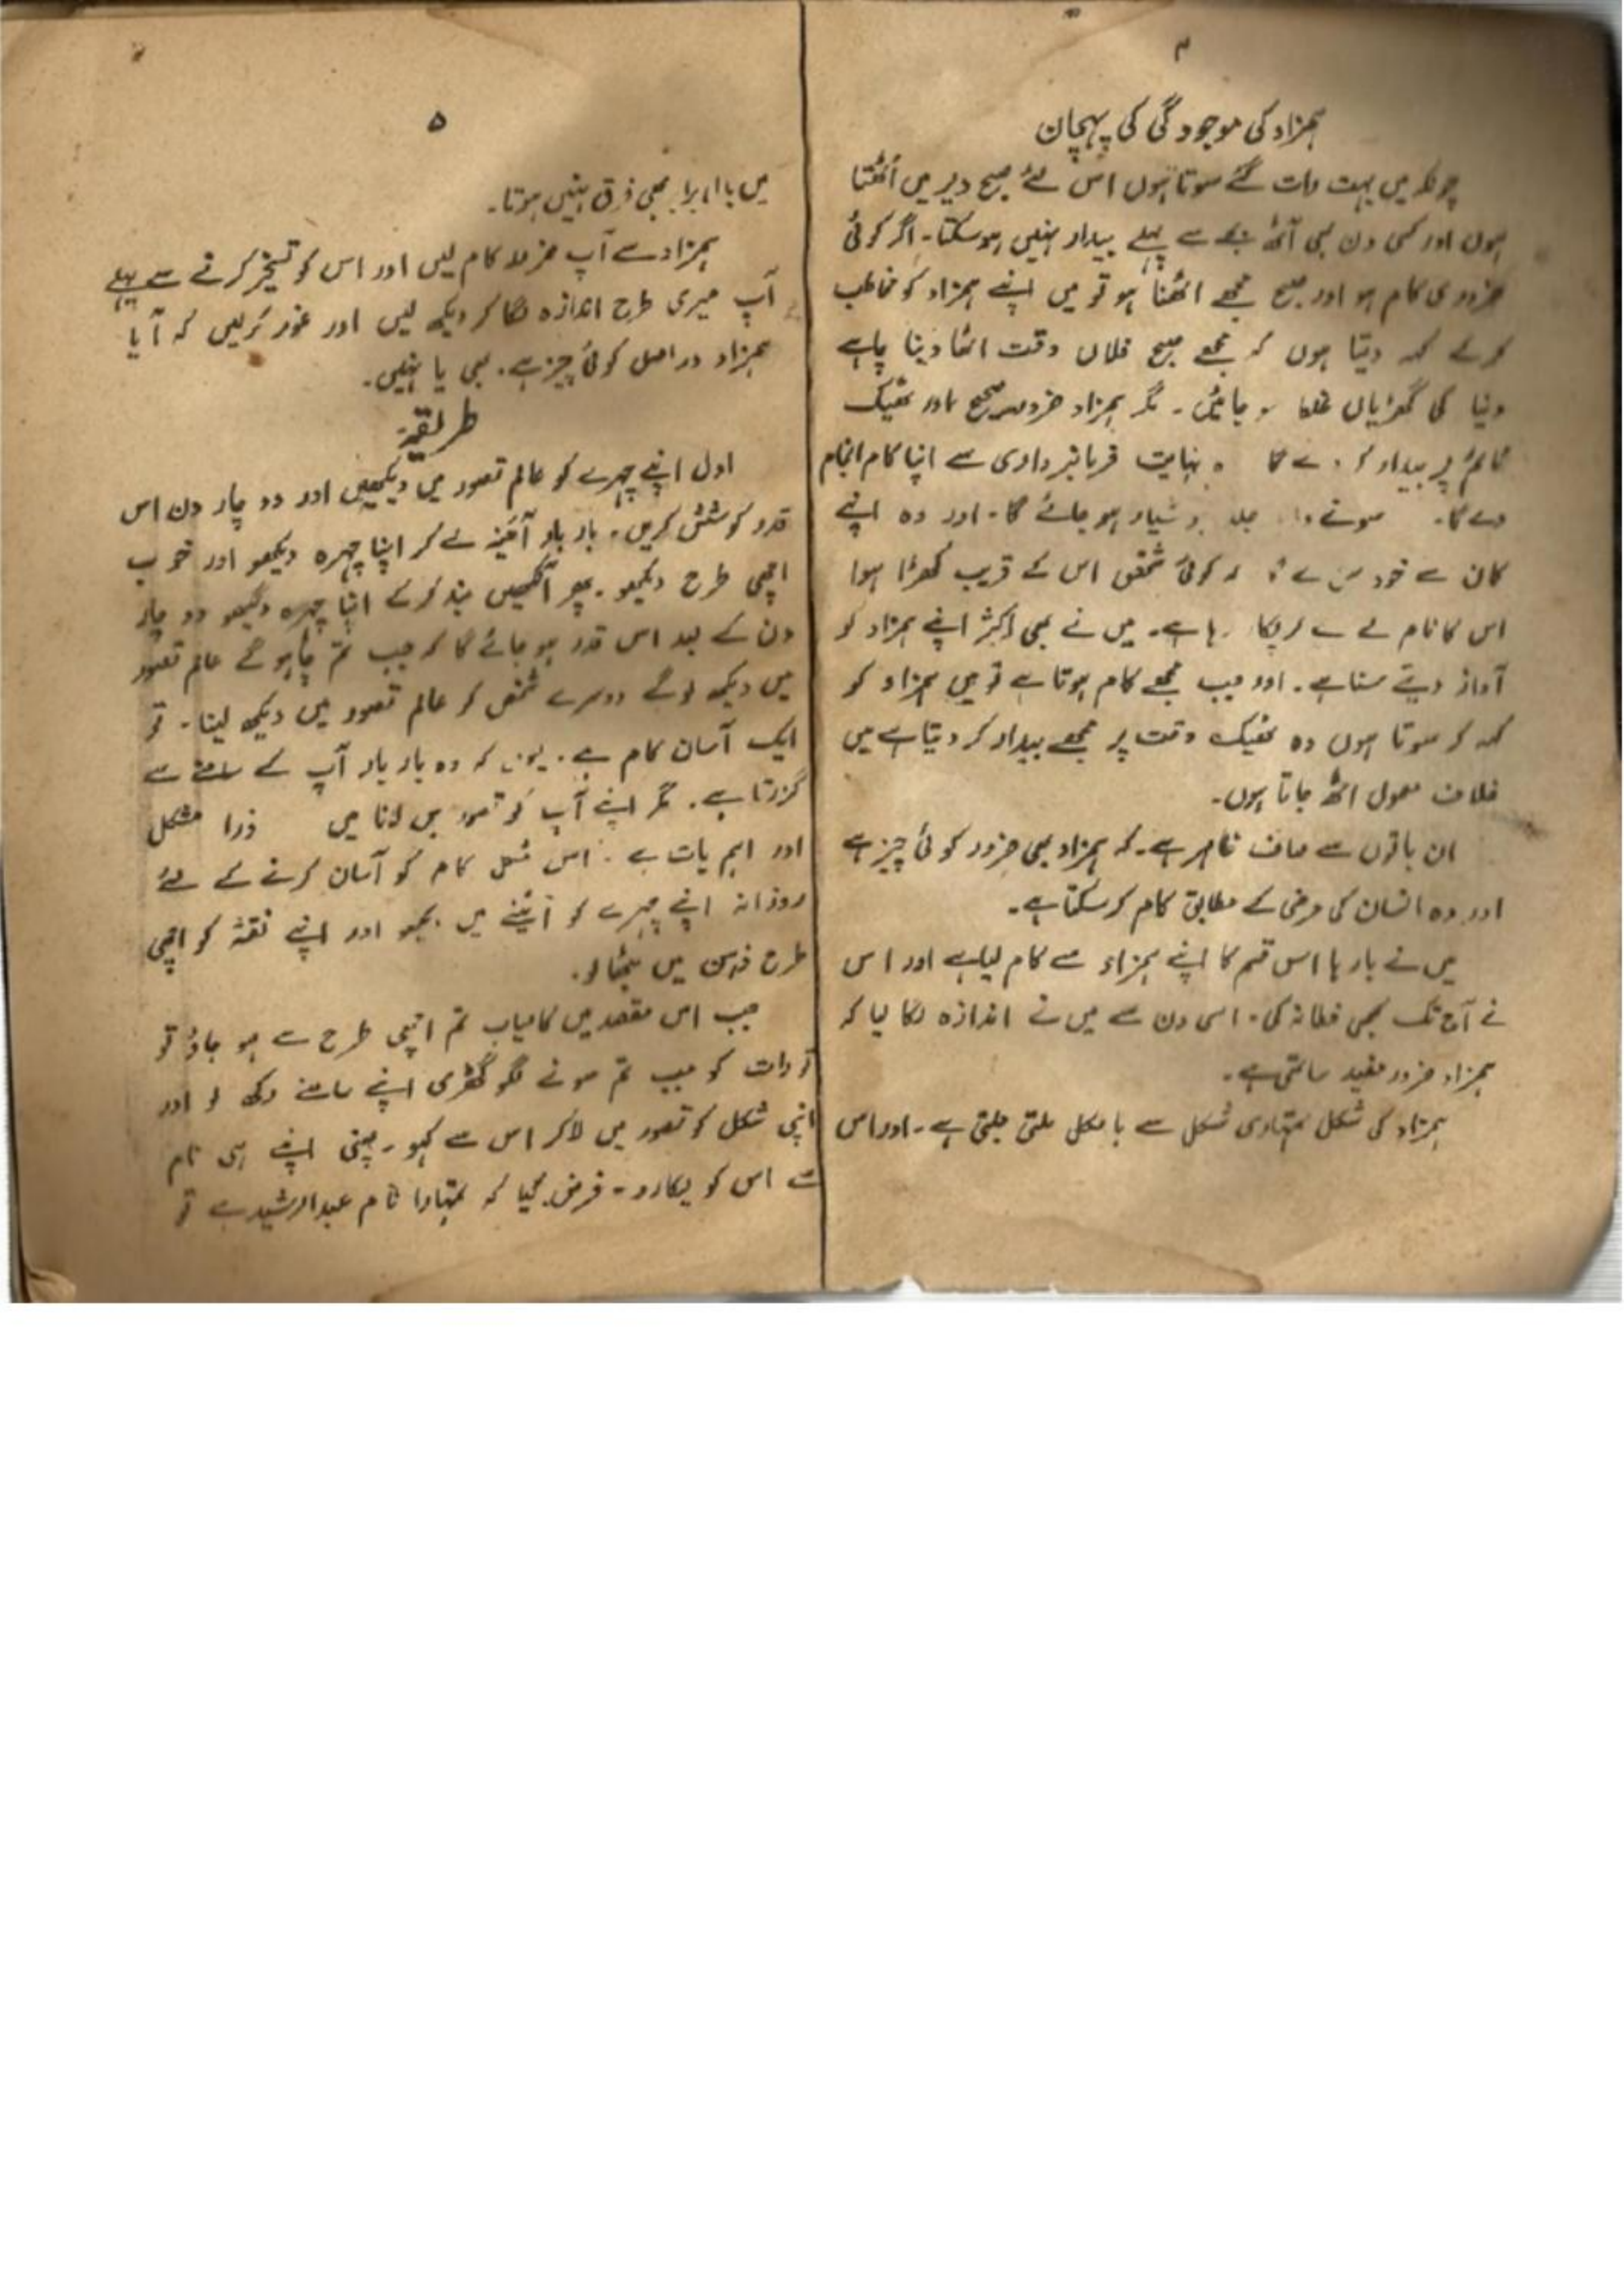 ۴
ہمزاد کی موجودگی کی پہچان
چونکہ میں بہت رات گئے سوتا ہوں اس لئے صبح دیر میں اُٹھتا
ہوں اور کسی دن بھی آٹھ بجے سے پہلے بیدار نہیں ہوسکتا۔ اگر کوئی
ضروری کام ہو اور صبح مجھے اٹھنا ہو تو میں اپنے ہمزاد کو مخاطب
کرکے کہہ دیتا ہوں کہ مجھے صبح فلاں وقت اٹھا دینا چاہے
دنیا کی گھڑیاں غلط ہو جائیں۔ مگر ہمزاد ضرور صحیح اور ٹھیک
ٹائم پر بیدار کر دے گا وہ نہایت فرمانبرداری سے اپنا کام انجام
دے گا۔ سونے والا جلد ہوشیار ہو جائے گا۔ اور وہ اپنے
کان سے خود سن لے گا کہ کوئی شخص اس کے قریب کھڑا ہوا
اس کا نام لے لے کر پکار رہا ہے۔ میں نے بھی اکثر اپنے ہمزاد کو
آواز دیتے سنا ہے۔ اور جب مجھے کام ہوتا ہے تو میں ہمزاد کو
کہہ کر سوتا ہوں وہ ٹھیک وقت پر مجھے بیدار کر دیتا ہے میں
خلاف معمول اٹھ جاتا ہوں۔
ان باتوں سے صاف ظاہر ہے۔ کہ ہمزاد بھی ضرور کوئی چیز ہے
اور وہ انسان کی مرضی کے مطابق کام کرسکتا ہے۔
میں نے بارہا اس قسم کا اپنے ہمزاد سے کام لیا ہے اور اس
نے آج تک کبھی خطا نہ کی۔ اسی دن سے میں نے اندازہ لگا لیا کہ
ہمزاد ضرور مفید ساتھی ہے۔
ہمزاد کی شکل تمہاری شکل سے بالکل ملتی جلتی ہے۔ اور اس
۵
میں بال برابر بھی فرق نہیں ہوتا۔
ہمزاد سے آپ ضرور کام لیں اور اس کو تسخیر کرنے سے پہلے
آپ میری طرح اندازہ لگا کر دیکھ لیں اور غور کرلیں کہ آیا
ہمزاد دراصل کوئی چیز ہے۔ بھی یا نہیں۔
طریقہ
اول اپنے چہرے کو عالم تصور میں دیکھیں اور دو چار دن اس
قدر کوشش کریں۔ بار بار آئینہ لے کر اپنا چہرہ دیکھو اور خوب
اچھی طرح دیکھو۔ پھر آنکھیں بند کرکے اپنا چہرہ دیکھو دو چار
دن کے بعد اس قدر ہو جائے گا کہ جب تم چاہو گے عالم تصور
میں دیکھ لوگے دوسرے شخص کو عالم تصور میں دیکھ لینا۔ تو
ایک آسان کام ہے۔ کیوں کہ وہ بار بار آپ کے سامنے سے
گزرتا ہے۔ مگر اپنے آپ کو تصور میں لانا میں ذرا مشکل
اور اہم بات ہے۔ اس مشکل کام کو آسان کرنے کے لئے
روزانہ اپنے چہرے کو آئینے میں دیکھو اور اپنے نقشہ کو اچھی
طرح ذہن میں بٹھا لو۔
جب اس مقصد میں کامیاب تم اچھی طرح سے ہو جاؤ تو
تو رات کو جب تم سونے لگو گھڑی اپنے سامنے رکھ لو اور
اپنی شکل کو تصور میں لاکر اس سے کہو۔ یعنی اپنے ہی نام
سے اس کو پکارو۔ فرض کیا کہ تمہارا نام عبدالرشید ہے تو